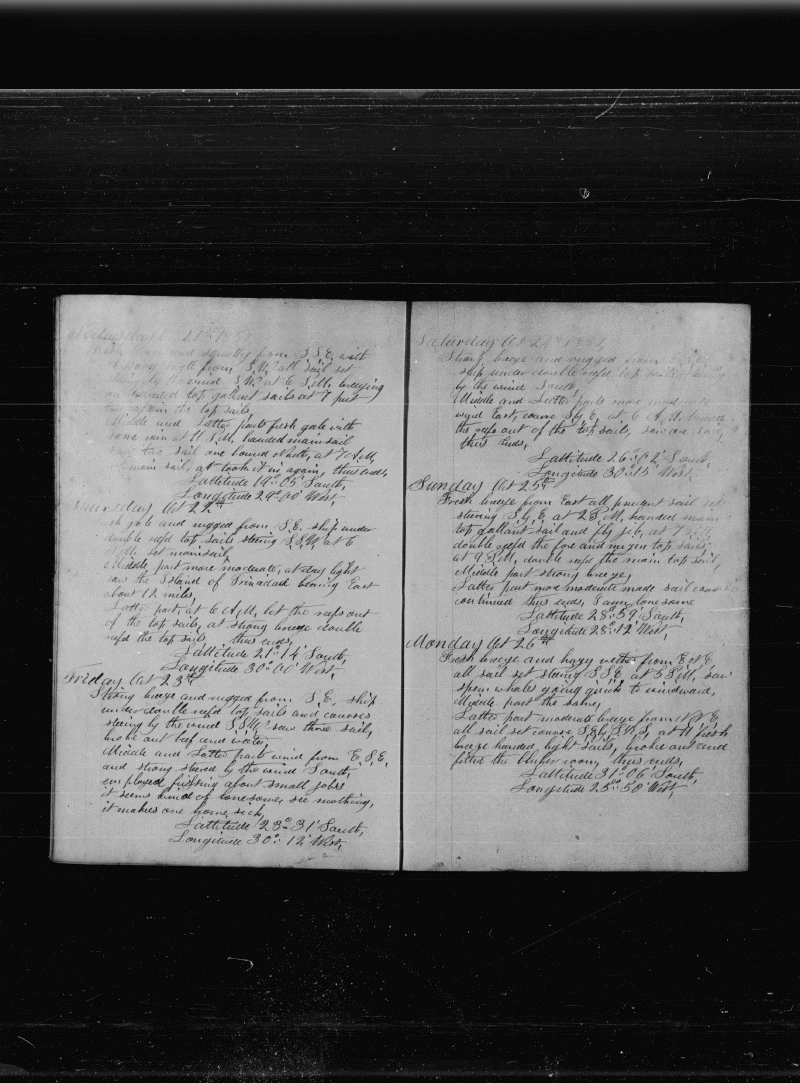 Wednesday Oct 21st 1857
and squally from S.S.E. with
from S.W. all sail set
by the wind S.W. at 6 P.M. breezing
on handed top gallant sails at 7 put
the top sails
Middle and Latter parts fresh gale with
some rain at 11 P.M. handed mainsail
saw one sail one bound North, at 7 A.M.
main sail, at took it in again, thus ends,
Lattitude 19°.05' South,
Longitude 29°.00' West,
Thursday Oct 22nd
Fresh gale and rugged from S.E. ship under
double refd top sails steering S.S.W. at 6
P.M. set mainsail,
Middle part more moderate, at day light
saw the Island of Trinadad bearing East
about 12 miles,
Latter part, at 6 A.M. let the reefs out
of the top sails, at strong breeze double
refd the top sails thus ends,
Lattitude 21°.14' South,
Longitude 30°.00' West,
Friday Oct 23rd
Strong breeze and rugged from S.E. ship
under double refd top sails and courses
steering by the wind S.S.W. saw three sail,
broke out beef and water,
Middle and Latter parts wind from E.S.E.
and strong steered by the wind South,
employed fixing about small jobs
it seems kind of lonesome, see nothing,
it makes one home sick,
Lattitude 23°.31' South,
Longitude 30°.12' West,
Saturday Oct 24th 1857,
Strong breeze and rugged from
ship under double refd top sails
by the wind South,
Middle and Latter parts more moderate
wind East, course S.by E. at 6 A.M. turned
the refs out of the top sails, saw one sail,
thus ends,
Lattitude 26°.12' South,
Longitude 30°.15' West,
Sunday Oct 25th
Fresh breeze from East all prudent sail set
steering S.by E. at 2 P.M. handed main
top gallant sail and fly jib, at 7
double refd the fore and mizen top sails
at 9 P.M. double refd the main top sail,
Middle part strong breeze,
Latter part more moderate made sail course
continued thus ends, lonesome
Lattitude 28°.59' South,
Longitude 28°.12' West,
Monday Oct 26th
Fresh breeze and hazy weth. from E.N.E.
all sail set steering S.S.E. at 5 P.M. saw
sperm whales going quick to windward,
Middle part the same,
Latter part moderate breeze from N.E.
all sail set course at 11 fresh
breeze handed light sails, broke out and
fitted the blubber room, thus ends,
Lattitude 31°.06' South,
Longitude 25°.50' West,